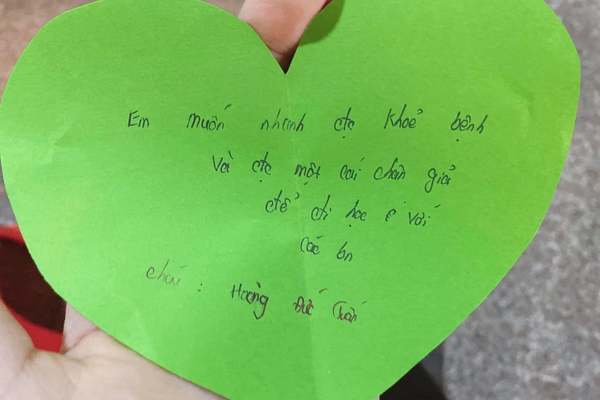 Em muốn nhanh đc khoẻ bệnh
và đc một cái chân giả
để đi học với
các bn
cháu : Hoàng Đức